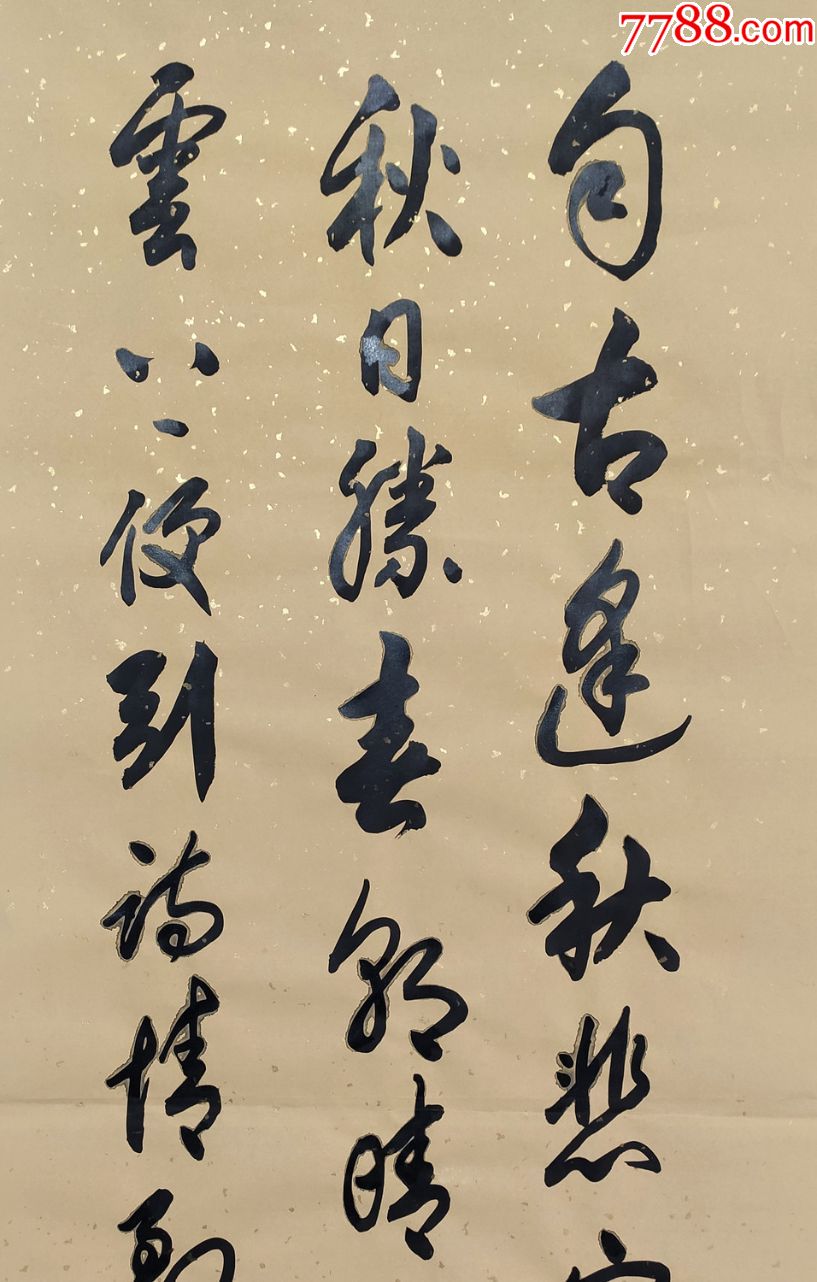 7788.com
自古逢秋悲
秋日勝春朝晴
雲上便引詩情到